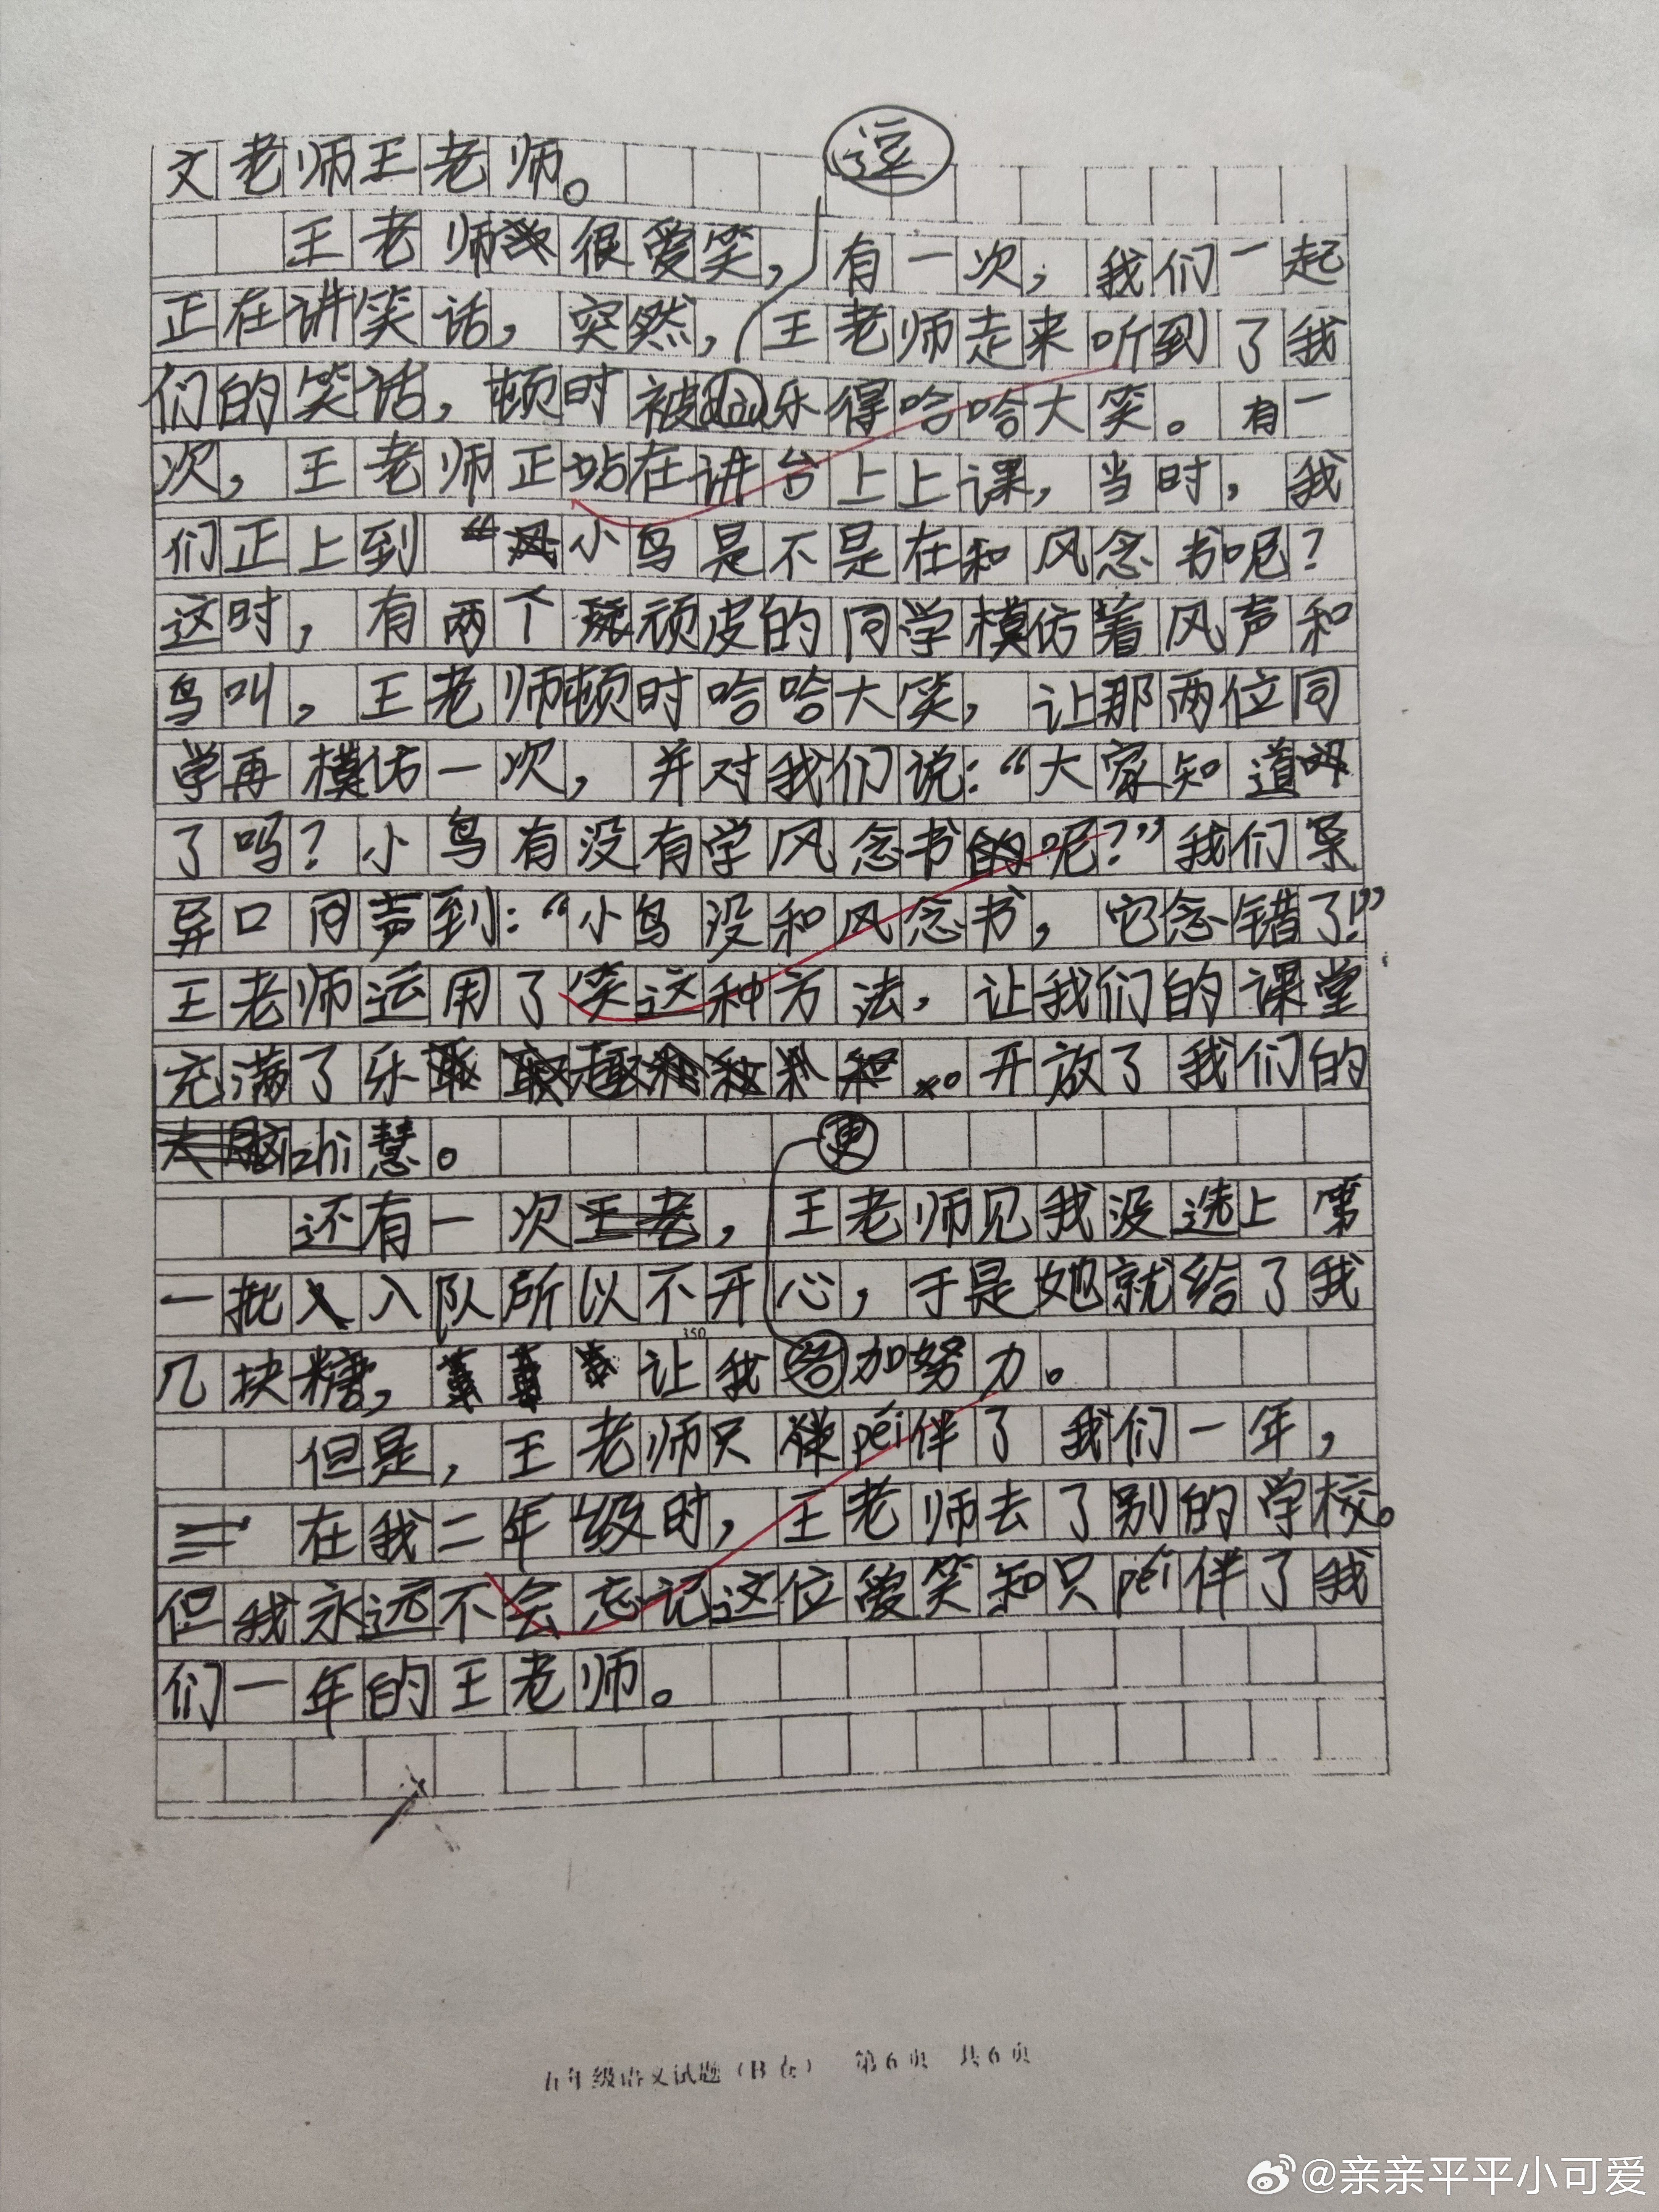 逗
文老师王老师。
王老师很爱笑，有一次，我们一起
正在讲笑话，突然，王老师走来听到了我
们的笑话，顿时被乐得哈哈大笑。有一
次，王老师正站在讲台上上课，当时，我
们正上到“小鸟是不是在和风念书呢？
这时，有两个顽皮的同学模仿着风声和
鸟叫，王老师顿时哈哈大笑，让那两位同
学再模仿一次，并对我们说：“大家知道
了吗？小鸟有没有学风念书的呢？”我们
异口同声到：“小鸟没和风念书，它念错了！”
王老师运用了笑这种方法，让我们的课堂
充满了乐开放了我们的
zhi慧。
更
还有一次，王老师见我没选上第
一批入队所以不开心，于是她就给了我
几块糖，让我加努力。
350
但是，王老师只péi伴了我们一年，
在我二年级时，王老师去了别的学校。
但我永远不会忘记这位爱笑和只péi伴了我
们一年的王老师。
五年级语文试题（B卷） 第6页 共6页
@亲亲平平小可爱